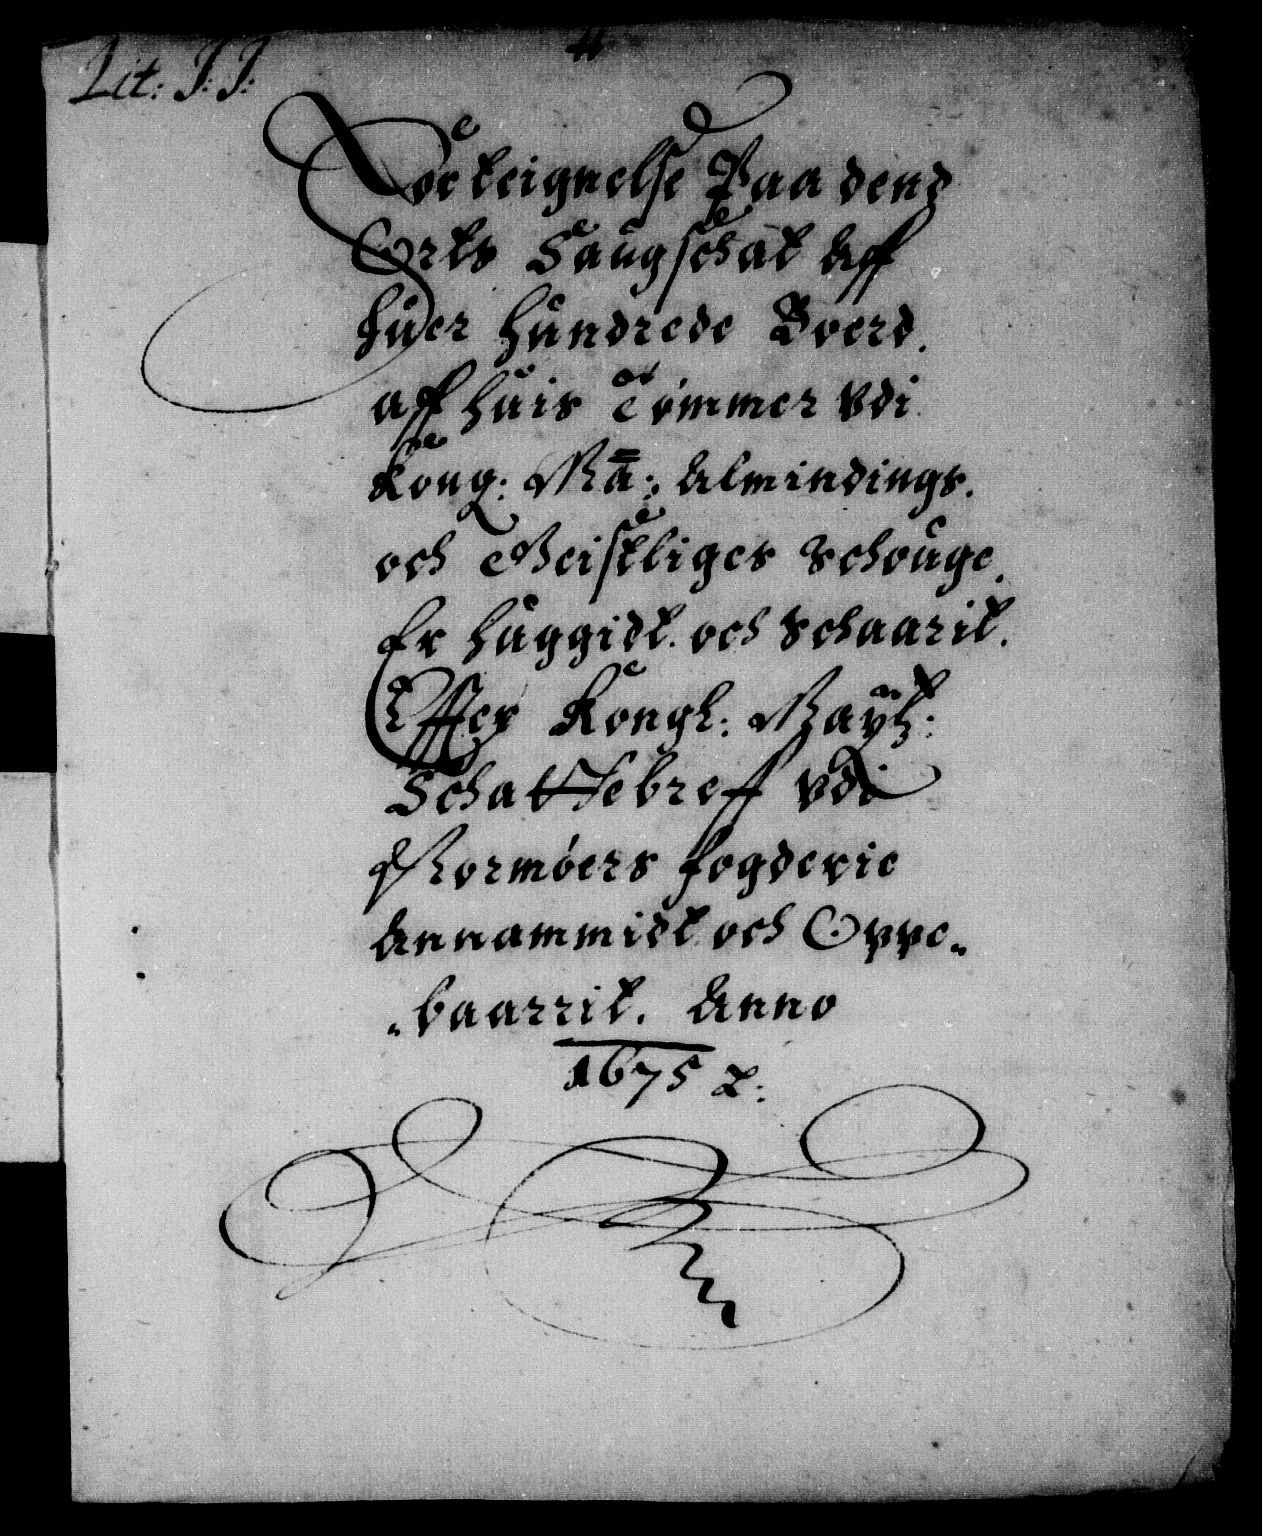 Lit: J: J:
Forteignelse Paa dend
Orts Saugschat Aff
huer hundrede Boerd.
aff huis Tømmer vdi
Kong: Ma: Almindings.
och Geistliges Schouge.
Er huggidt. och Schaarit.
Effter Kongl: Mayt:
Schattebreff vdi
Normøers fogderie
Annammidt och Oppe.
.baarrit. Anno
1675